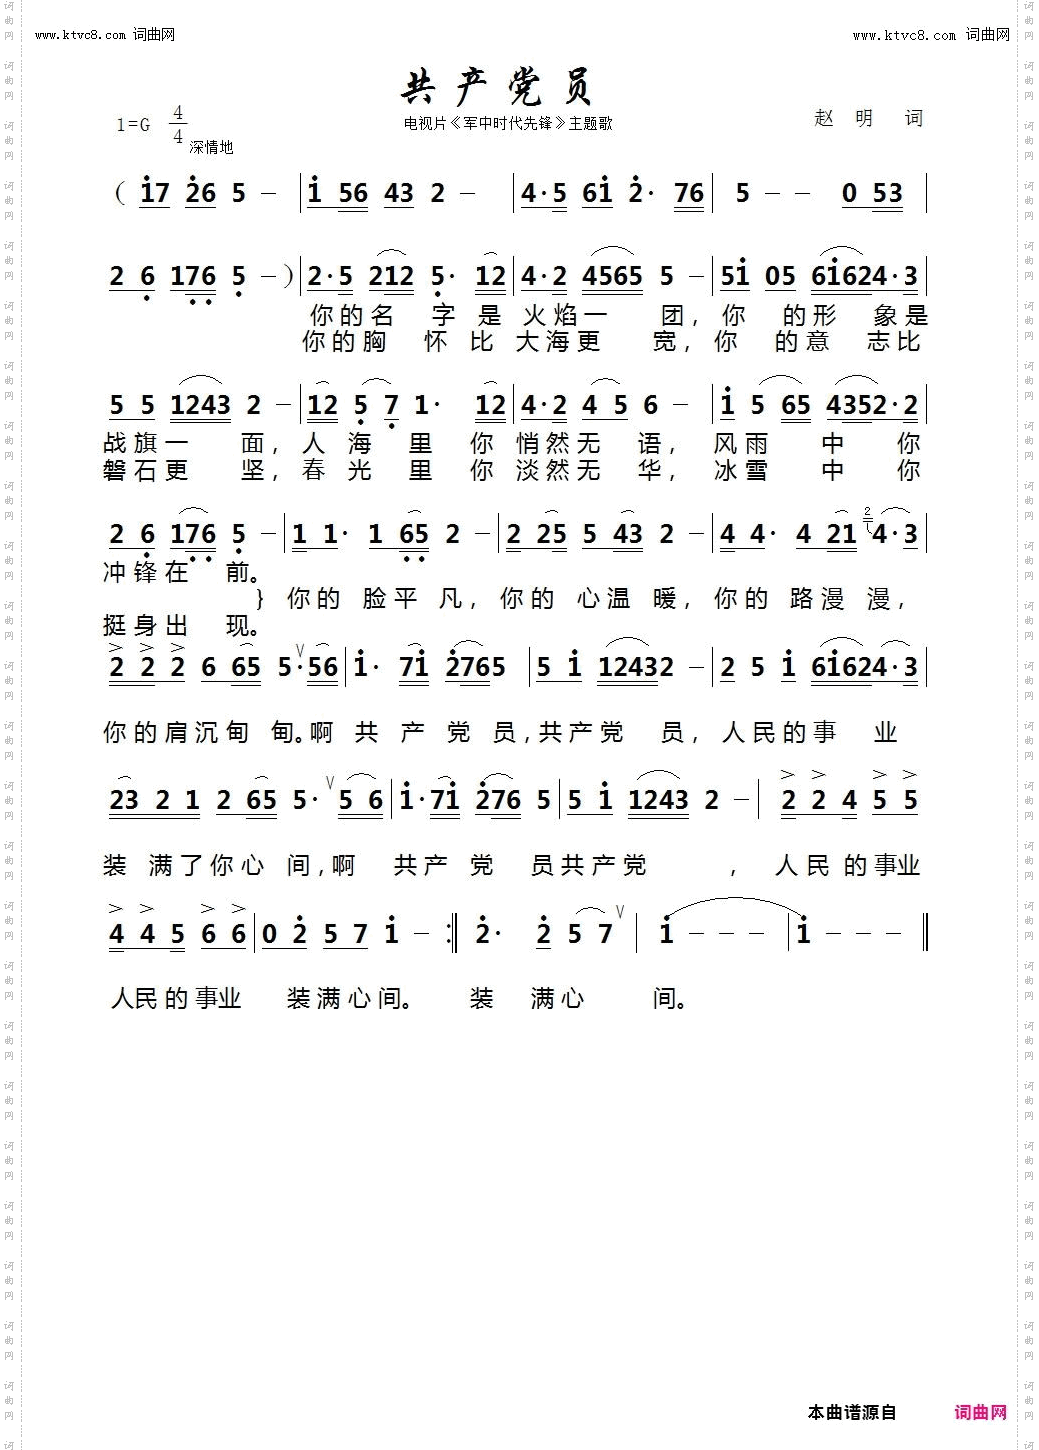 www.ktvc8.com 词曲网
www.ktvc8.com 词曲网
共产党员
电视片《军中时代先锋》主题歌
1=G 4/4 深情地
赵 明 词
( 1̇7 2̇6 5 － | 1̇ 56 43 2 － | 4·5 61̇ 2̇· 76 | 5 － － 0 53 |
2 6̣ 17̣6̣ 5̣ － ) | 2·5 212 5̣· 12 | 4·2 4565 5 － | 51̇ 05 61̇624·3 |
你的名 字 是 火焰一 团, 你 的形 象是
你的胸 怀 比 大海更 宽, 你 的意 志比
5 5 1243 2 － | 12 5̣ 7̣ 1· 12 | 4·2 4 5 6 － | 1̇ 5 65 4352·2 |
战旗一 面, 人 海 里 你 悄然无 语, 风雨 中 你
磐石更 坚, 春 光 里 你 淡然无 华, 冰雪 中 你
2 6̣ 17̣6̣ 5̣ － | 1 1· 1 6̣5̣ 2 － | 2 25 5 43 2 － | 4 4· 4 21 2 4·3 |
冲锋在 前。
} 你的 脸平 凡, 你的 心温 暖, 你的 路漫 漫,
挺身出 现。
2 2 2 6 65 5· V 56 | 1̇· 71̇ 2̇765 | 5 1̇ 12432 － | 2 5 1̇ 61̇624·3 |
你的肩沉甸 甸。啊 共 产 党 员,共产党 员, 人民的事 业
23 2 1 2 65 5· V 5 6 | 1̇·71̇ 2̇76 5 | 5 1̇ 1243 2 － | 2 2 4 5 5
装 满了你心 间,啊 共产 党 员共产党 , 人民 的事业
4 4 5 6 6 | 0 2̇ 5 7 1̇ － :‖ 2̇· 2̇ 5 7 V | 1̇ － － － | 1̇ － － － ‖
人民的事业 装满心间。 装 满心 间。
本曲谱源自 词曲网